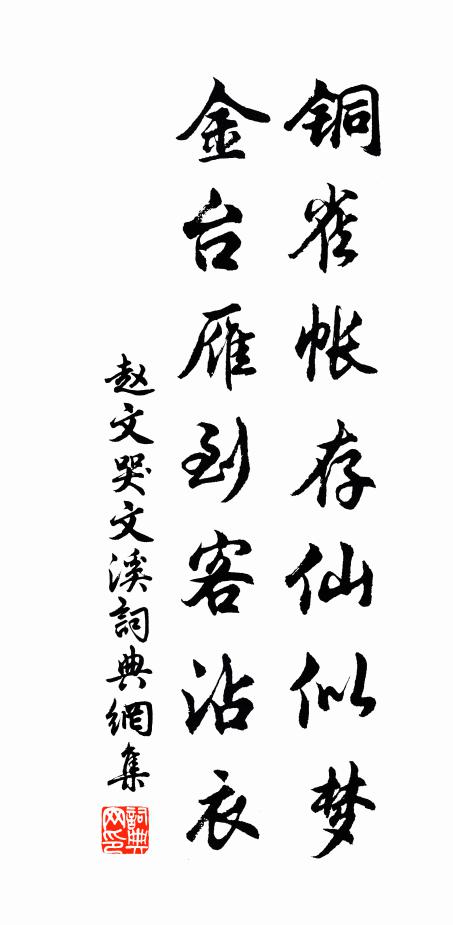 铜雀帐存仙似梦
金台雁到客沾衣
赵文哭文溪詞典網集
詞典网印